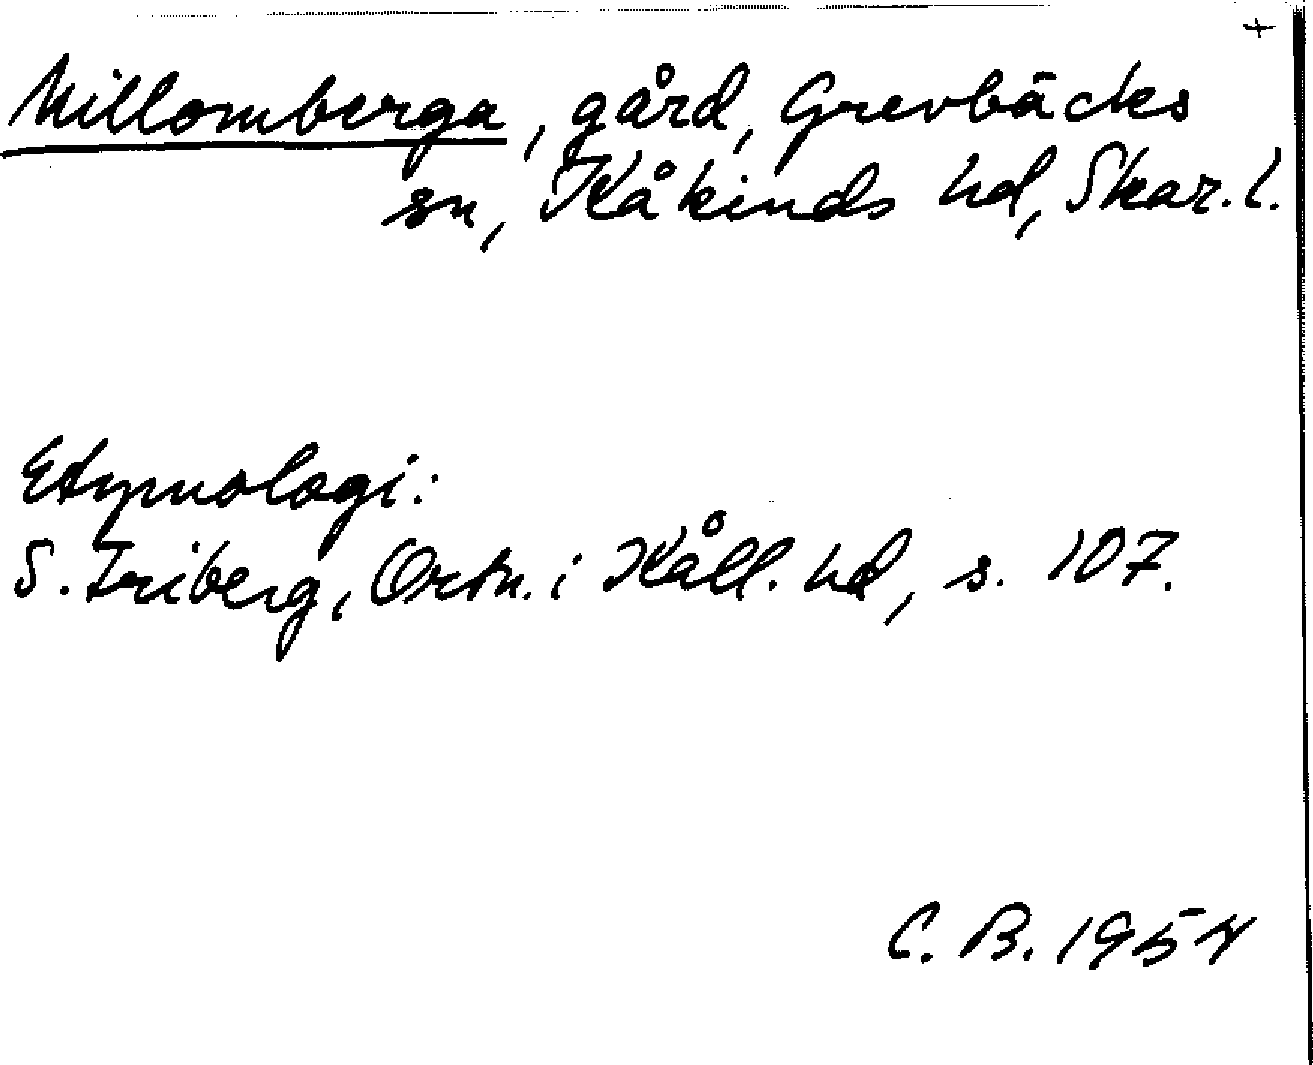 +
Millomberga, gård, Grevbäcks
sn, Kåkinds hd, Skar. l.
Etymologi:
S. Friberg, Ortn. i Kåll. hd, s. 107.
C. B. 1954